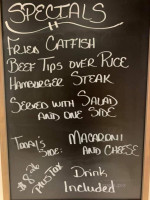 SPECIALS
FRIED CATFISH
BEEF TIPS OVER RICE
HAMBURGER STEAK
SERVED WITH SALAD
AND ONE SIDE
TODAY'S MACARONI
SIDE: AND CHEESE
Drink
PLUS TAX
Included